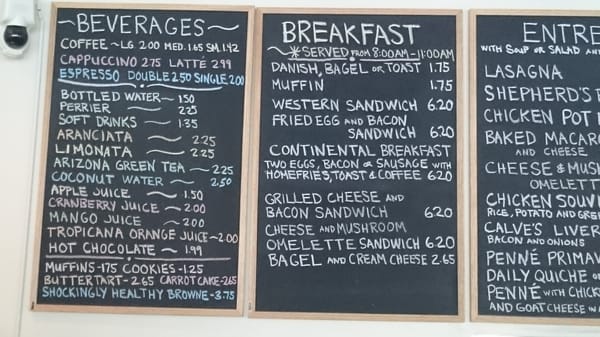 BEVERAGES
COFFEE ~ LG 2.00 MED. 1.65 SM. 1.42
CAPPUCCINO 2.75 LATTÉ 2.99
ESPRESSO DOUBLE 2.50 SINGLE 2.00
BOTTLED WATER ~ 1.50
PERRIER ~ 2.25
SOFT DRINKS ~ 1.35
ARANCIATA ~ 2.25
LIMONATA ~ 2.25
ARIZONA GREEN TEA ~ 2.25
COCONUT WATER ~ 2.50
APPLE JUICE ~ 1.50
CRANBERRY JUICE ~ 2.00
MANGO JUICE ~ 2.00
TROPICANA ORANGE JUICE ~ 2.00
HOT CHOCOLATE ~ 1.99
MUFFINS - 1.75 COOKIES - 1.25
BUTTERTART - 2.65 CARROT CAKE - 2.65
SHOCKINGLY HEALTHY BROWNE - 3.75
BREAKFAST
*SERVED FROM 8:00AM - 11:00AM
DANISH, BAGEL OR TOAST 1.75
MUFFIN 1.75
WESTERN SANDWICH 6.20
FRIED EGG AND BACON
SANDWICH 6.20
CONTINENTAL BREAKFAST
TWO EGGS, BACON OR SAUSAGE WITH
HOMEFRIES, TOAST & COFFEE 6.20
GRILLED CHEESE AND
BACON SANDWICH 6.20
CHEESE AND MUSHROOM
OMELETTE SANDWICH 6.20
BAGEL AND CREAM CHEESE 2.65
ENTRE
WITH SOUP OR SALAD
LASAGNA
SHEPHERD'S
CHICKEN POT
BAKED MACAR
AND CHEESE
CHEESE & MUSH
OMELETT
CHICKEN SOUV
RICE, POTATO AND GRE
CALVE'S LIVER
BACON AND ONIONS
PENNÉ PRIMAV
DAILY QUICHE
PENNÉ WITH CHICK
AND GOAT CHEESE